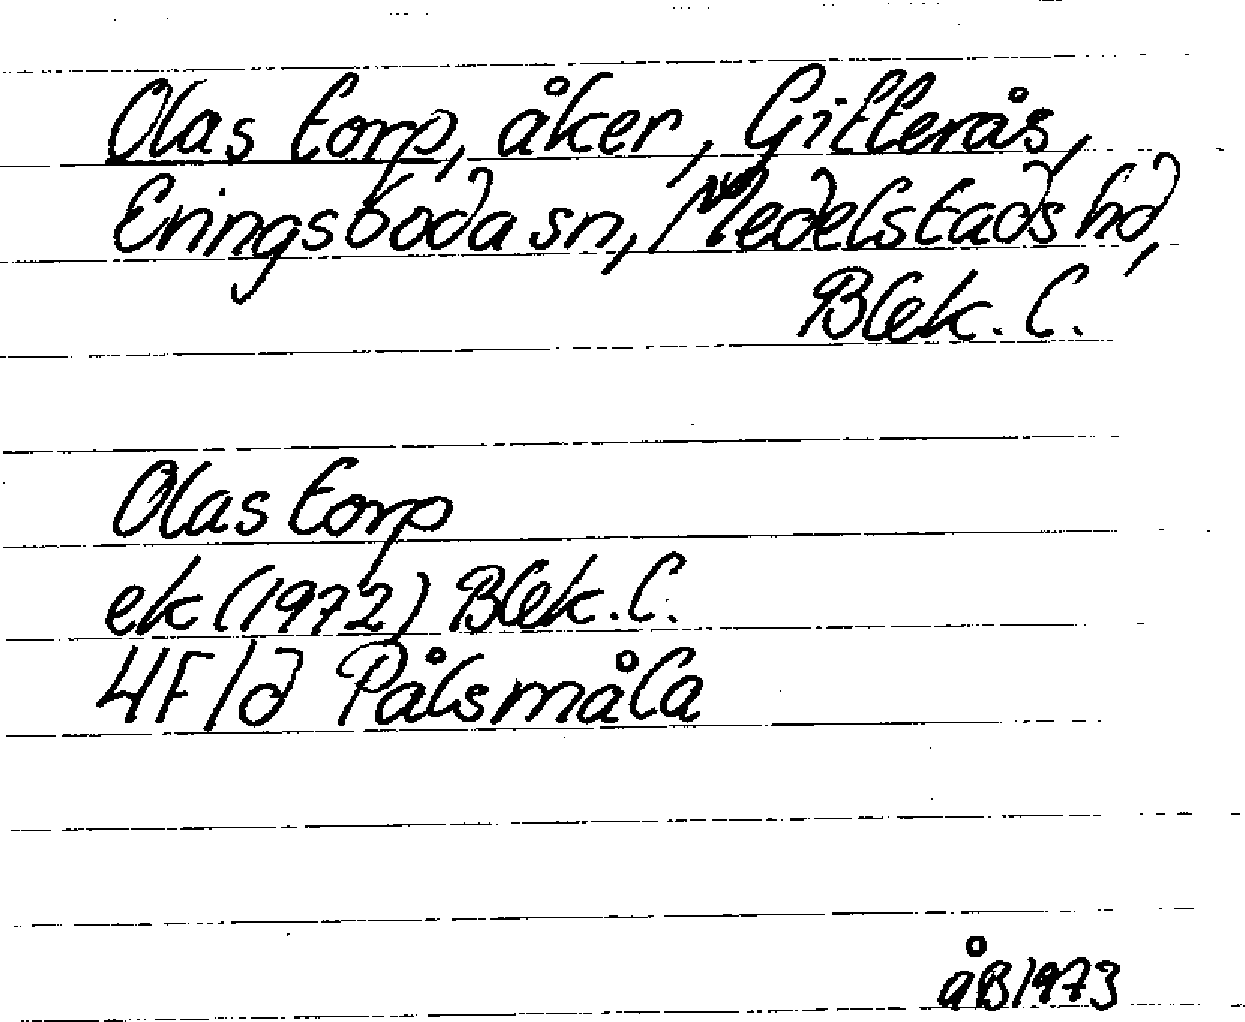 Olas torp, åker, Gitterås,
Eringsboda sn, Medelstads hd,
Blek. l.
Olas torp
ek (1972) Blek. l.
4F/d Pålsmåla
åB 1973